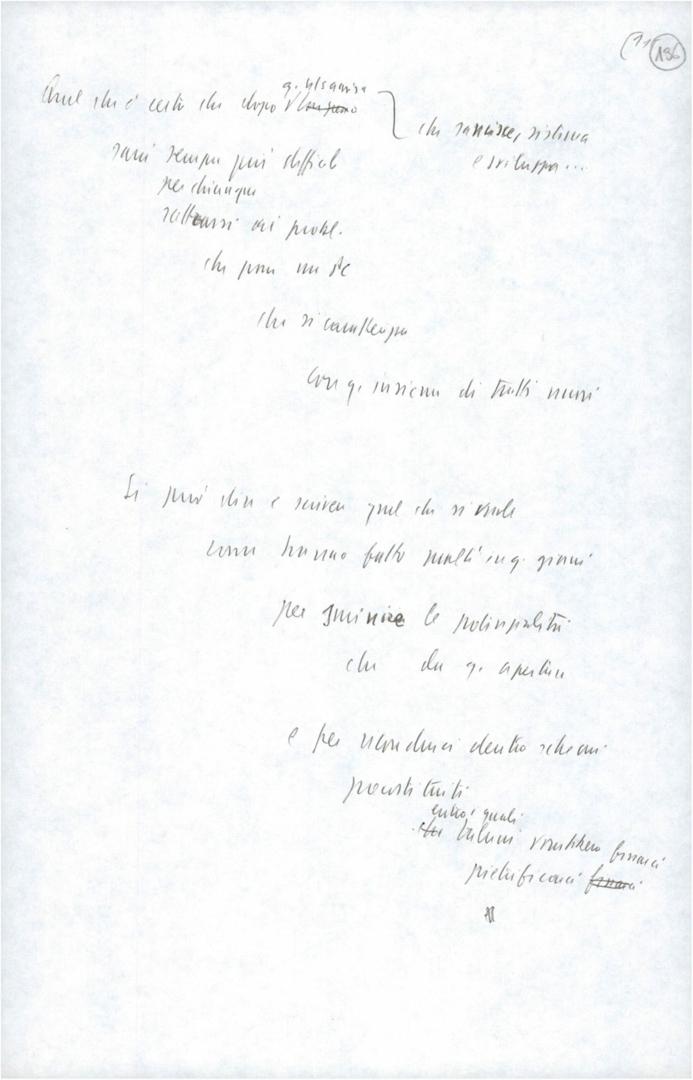 136
Quel che è certo che dopo q.
che sancisce, sistema
e sviluppa...
sarà sempre più difficile
per chiunque
sottrarsi ai probl.
che pone un PC
che si
con q. insieme di tratti nuovi
Si può dire e scrivere quel che si vuole
come hanno fatto molti in q. giorni
per sminuire le potenzialità
che da q. apertura
e per ricondurci dentro schemi
precostituiti
entro i quali
taluni vorrebbero fissarci
pietrificarci